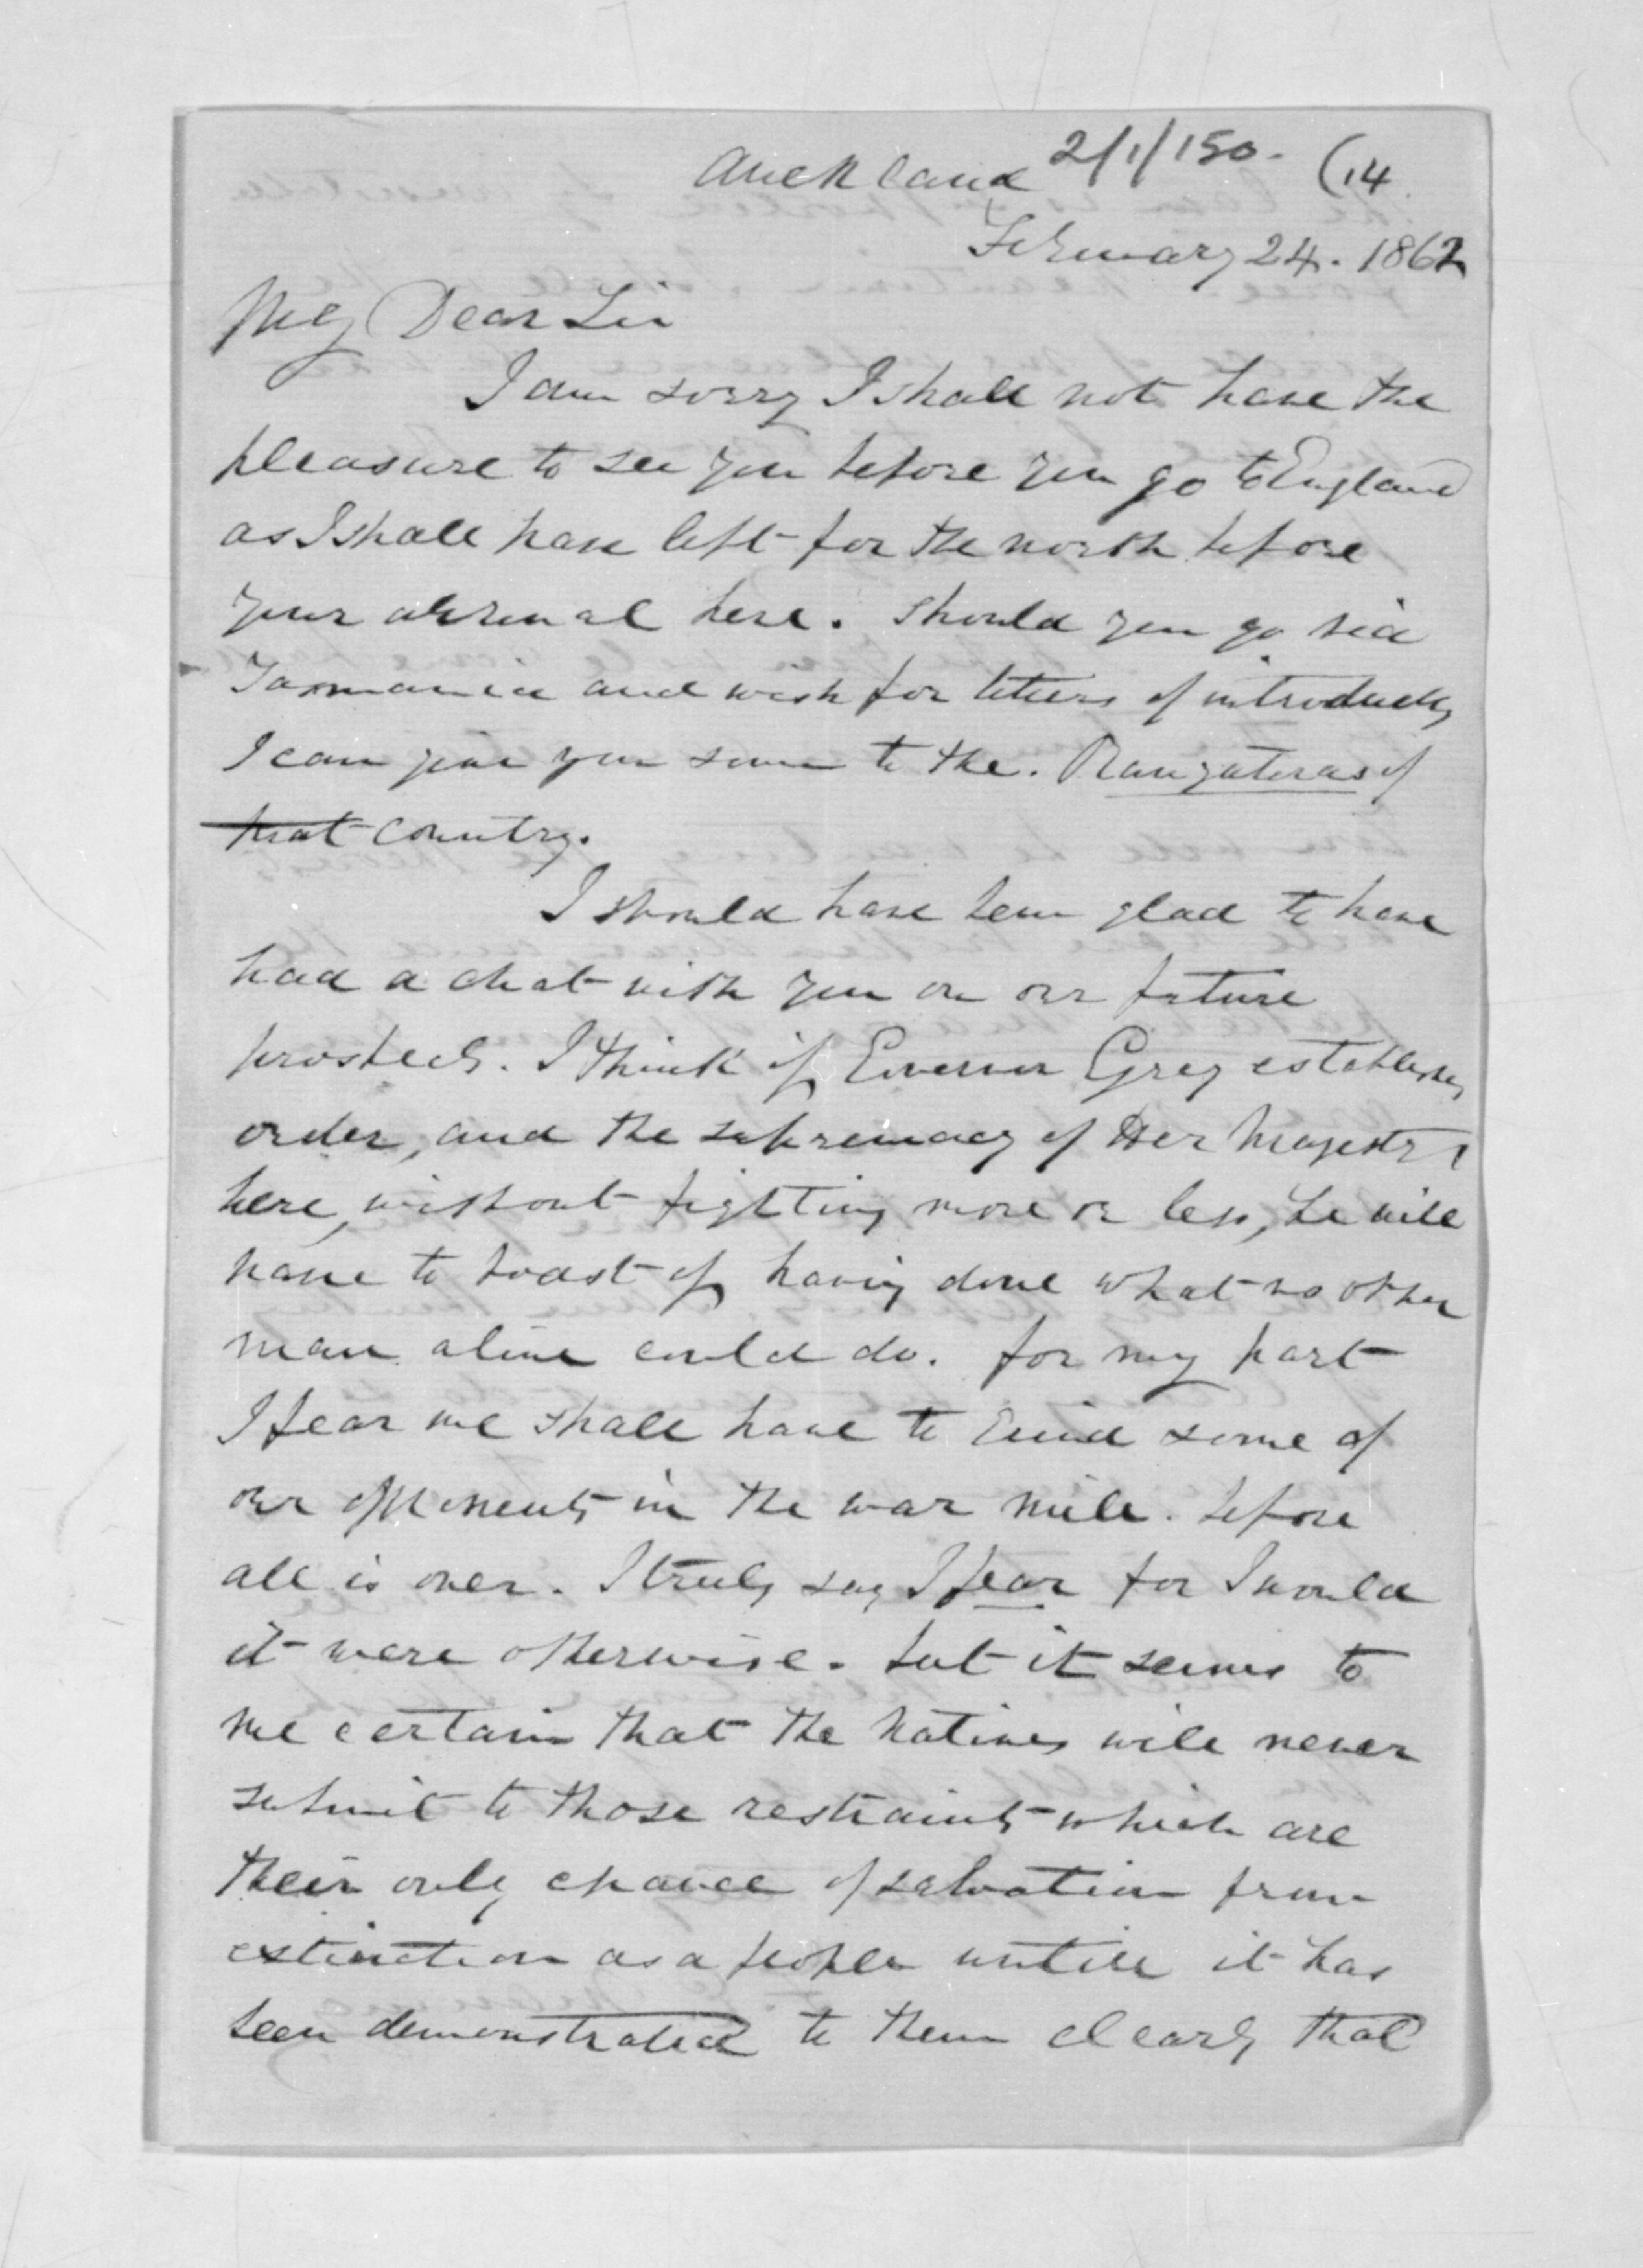 Auckland 2/1/150. (14
February 24. 1862
My Dear Sir
I am sorry I shall not have the
pleasure to see you before you go to England
as I shall have left for the north before
your arrival here. Should you go via
Tasmania and wish for letters of introduction
I can give you some to the Rangatiras of
that country.
I should have been glad to have
had a chat with you on our future
prospects. I think if Governor Grey establishes
order, and the supremacy of Her Majesty
here, without fighting more or less, he will
have to boast of having done what no other
man alive could do. for my part
I fear we shall have to grind some of
our opponents in the war mill. before
all is over. I truly say I fear for I would
it were otherwise. but it seems to
me certain that the natives will never
submit to those restraints which are
their only chance of salvation from
extinction as a people untill it has
been demonstrated to them clearly that